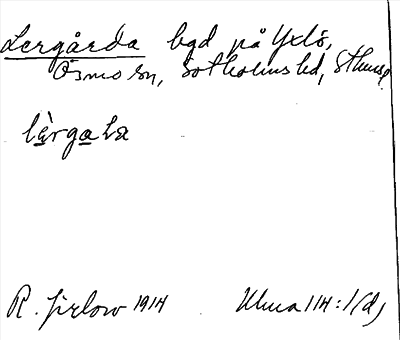 Lergårda bgd på Yxlö,
Ösmo sn, Sotholms hd, Sthms
lèrgaLa
R. Jirlow 1914 Ulma 114:1(d)